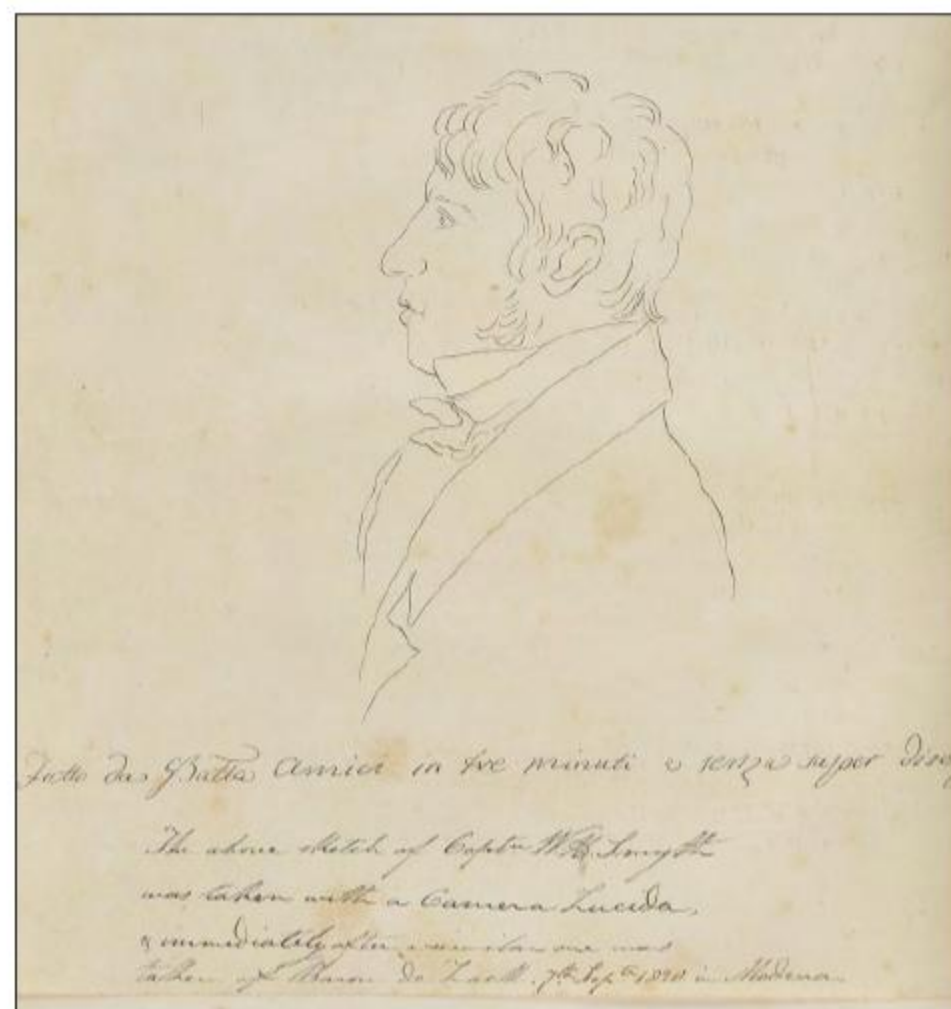 Fatto da Batta Amici in tre minuti e senza saper
The above sketch of Captn W H Smyth
was taken with a Camera Lucida,
& immediately after a similar one was
taken of Baron de Zach. 7th Sepr in Modena